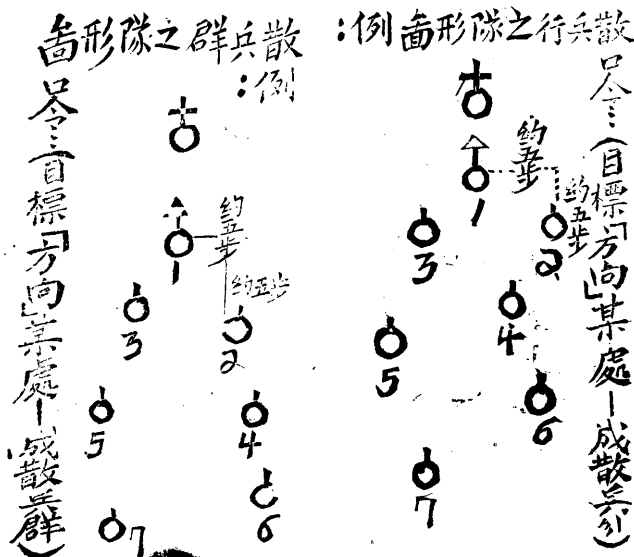 散兵行之隊形啚例:
口令:::(目標「方向」某處—成散兵行)
約五步
約五步
1
2
3
4
5
6
7
散兵群之隊形啚
例:
口令:::(目標「方向」某處—成散兵群)
約五步
約五步
1
2
3
4
5
6
7